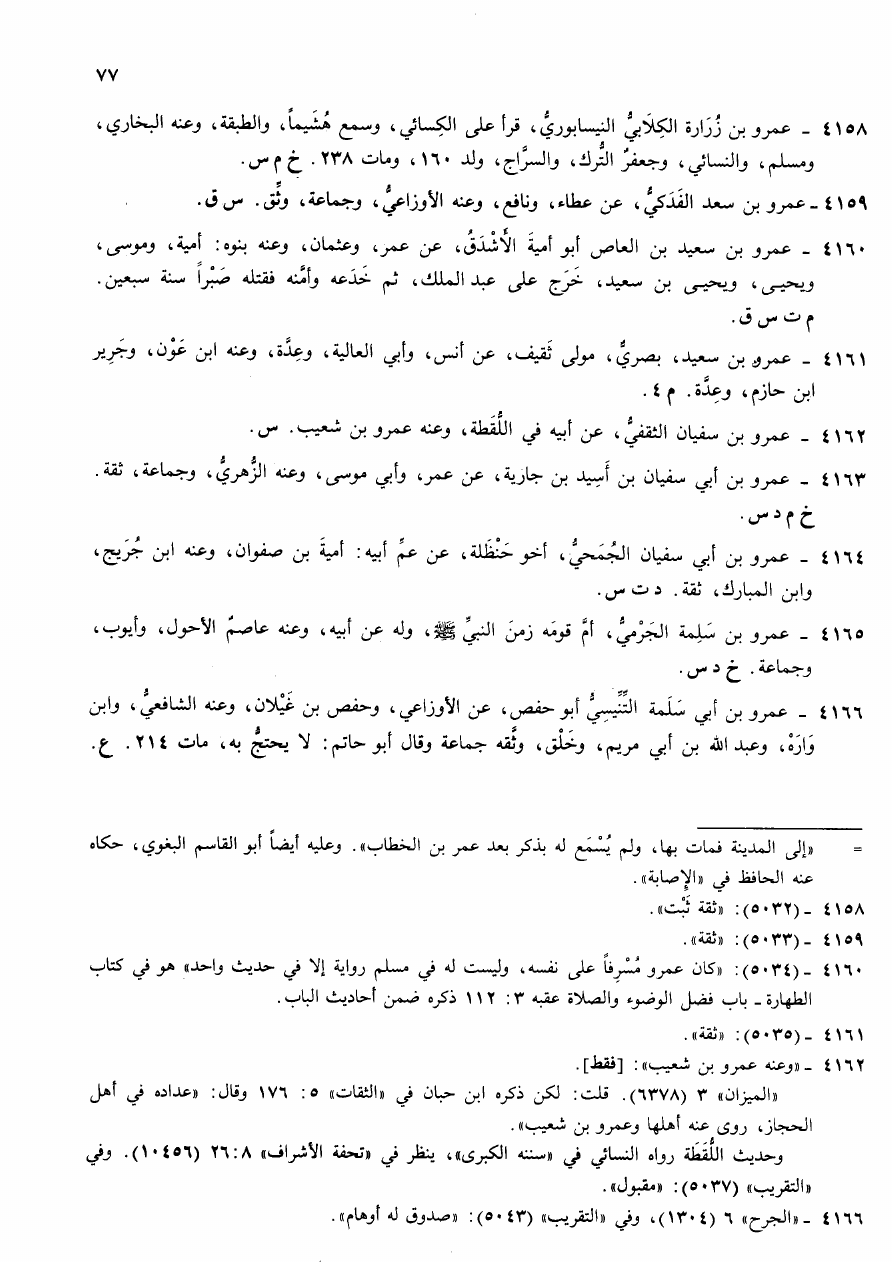 ٧٧
٤١٥٨ ـ عمرو بن زُرَارة الكِلَابيُّ النيسابوريُّ، قرأ على الكِسائي، وسمع هُشَيماً، والطبقة، وعنه البخاري،
ومسلم، والنسائي، وجعفرٌ التُّرك، والسرَّاج، ولد ١٦٠، ومات ٢٣٨. خ م س.
٤١٥٩ ـ عمرو بن سعد الفَدَكيُّ، عن عطاء، ونافع، وعنه الأوزاعيُّ، وجماعة، وثِّق. س ق.
٤١٦٠ ـ عمرو بن سعيد بن العاص أبو أميةَ الأَشْدَقُ، عن عمر، وعثمان، وعنه بنوه: أمية، وموسى،
ويحيى، ويحيى بن سعيد، خَرَج على عبد الملك، ثم خَدَعه وأمَّنه فقتله صَبْراً سنة سبعين.
م ت س ق.
٤١٦١ ـ عمرو بن سعيد، بصريٌّ، مولى ثَقيف، عن أنس، وأبي العالية، وعِدَّة، وعنه ابن عَوْن، وجَرير
ابن حازم، وعِدَّة. م ٤.
٤١٦٢ ـ عمرو بن سفيان الثقفيُّ، عن أبيه في اللُّقَطة، وعنه عمرو بن شعيب. س.
٤١٦٣ ـ عمرو بن أبي سفيان بن أَسِيد بن جارية، عن عمر، وأبي موسى، وعنه الزُّهريُّ، وجماعة، ثقة.
خ م د س.
٤١٦٤ ـ عمرو بن أبي سفيان الجُمَحيُّ، أخو حَنْظَلة، عن عمِّ أبيه: أميةَ بن صفوان، وعنه ابن جُرَيج،
وابن المبارك، ثقة. د ت س.
٤١٦٥ ـ عمرو بن سَلِمة الجَرْميُّ، أمَّ قومَه زمنَ النبيِّ ﷺ، وله عن أبيه، وعنه عاصمٌ الأحول، وأيوب،
وجماعة. خ د س.
٤١٦٦ ـ عمرو بن أبي سَلَمة التِّنِّيسيُّ أبو حفص، عن الأوزاعي، وحفص بن غَيْلان، وعنه الشافعيُّ، وابن
وَارَهْ، وعبد الله بن أبي مريم، وخَلْق، وثَّقه جماعة وقال أبو حاتم: لا يحتجُّ به، مات ٢١٤. ع.
= «إلى المدينة فمات بها، ولم يُسْمَع له بذكر بعد عمر بن الخطاب». وعليه أيضاً أبو القاسم البغوي، حكاه
عنه الحافظ في «الإصابة».
٤١٥٨ ـ (٥٠٣٢): «ثقة ثَبْت».
٤١٥٩ ـ (٥٠٣٣): «ثقة».
٤١٦٠ ـ (٥٠٣٤): «كان عمرو مُسْرِفاً على نفسه، وليست له في مسلم رواية إلا في حديث واحد» هو في كتاب
الطهارة ـ باب فضل الوضوء والصلاة عقبه ٣: ١١٢ ذكره ضمن أحاديث الباب.
٤١٦١ ـ (٥٠٣٥): «ثقة».
٤١٦٢ ـ «وعنه عمرو بن شعيب»: [فقط].
«الميزان» ٣ (٦٣٧٨). قلت: لكن ذكره ابن حبان في «الثقات» ٥: ١٧٦ وقال: «عداده في أهل
الحجاز، روى عنه أهلها وعمرو بن شعيب».
وحديث اللُّقَطَة رواه النسائي في «سننه الكبرى»، ينظر في «تحفة الأشراف» ٨: ٢٦ (١٠٤٥٦). وفي
«التقريب» (٥٠٣٧): «مقبول».
٤١٦٦ ـ «الجرح» ٦ (١٣٠٤)، وفي «التقريب» (٥٠٤٣): «صدوق له أوهام».